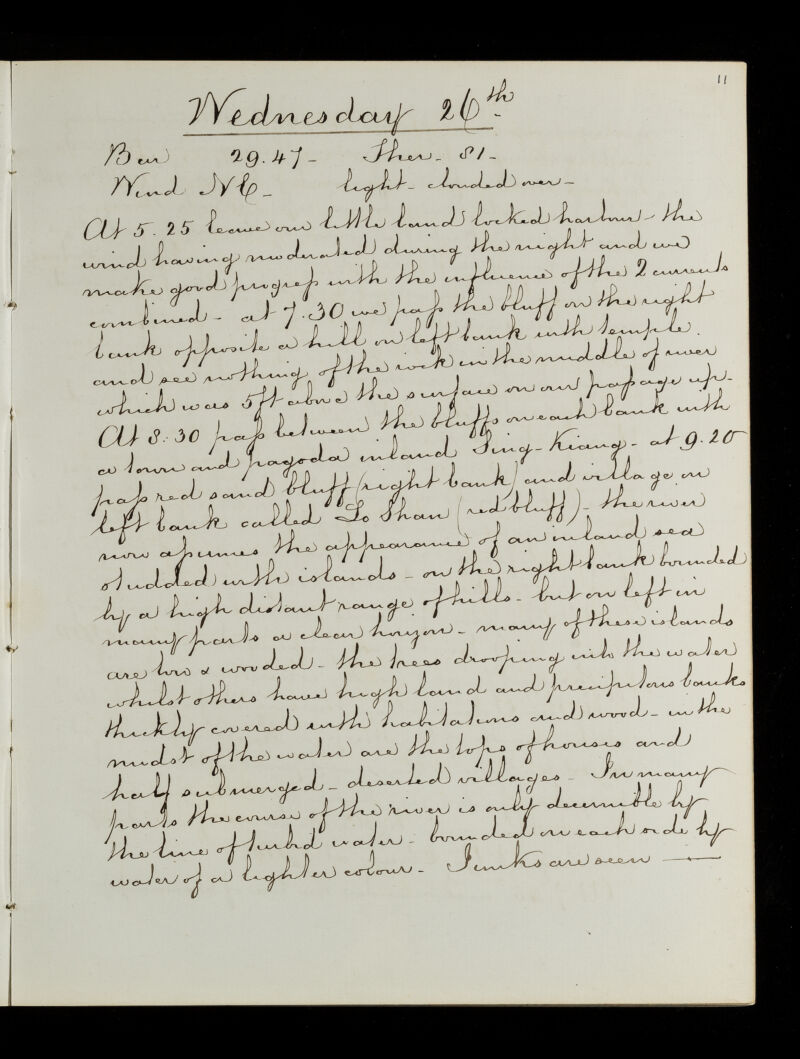 11
Wednesday 26th
Bar 29.47 - Ther - 81 -
Wind NE - light - clouded over -
At 5.25 leave our little land locked harbour - the
wind having moderated during the night and we
make good progress with the influence of the 2 currents
combined - at 7.30 we pass the bluff on the right
bank opposite a hill on left bank with temple.
and see nothing of the rock in the middle of river
which was 5ft above the surface on our passage up -
At 8.30 pass between the bluffs on each bank with
a town and pagoda inland Sing-Kiang - at 9.20
pass red sand bluff (right bank) and village on
left bank called Lo Shan (red bluff) - the river
now assumes the appearance of an inland sea
studded with islands - on the right bank bounded
by a high distant range of hills - but on left in
many parts a clear horizon - many of these islands
are low & wooded - the trees drooping into the water
whilst others have high land and precipitous banks
thickly covered with habitations and wood - in the
midst of the water are the tops of houses and
half submerged - deserted villages - In many
parts the course of the river is only decernible by
the line of turbid water - bounded on each side by
water of a lighter colour - Junks are seen -